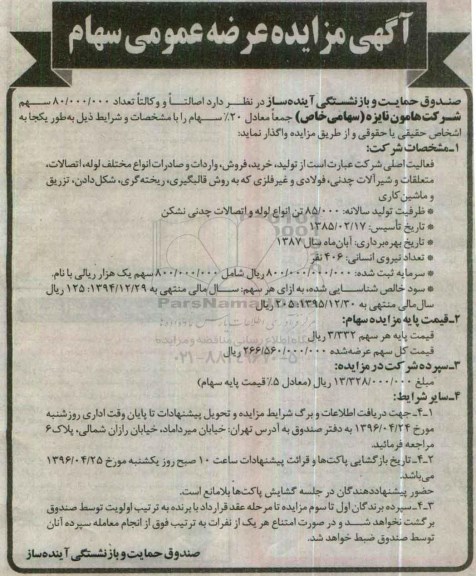 آگهی مزایده عرضه عمومی سهام
صندوق حمایت و بازنشستگی آینده‌ساز در نظر دارد اصالتاً و وکالتاً تعداد ۸۰/۰۰۰/۰۰۰ سهم
شرکت هامون نایزه (سهامی خاص) جمعاً معادل ۲۰٪ سهام را با مشخصات و شرایط ذیل به‌طور یکجا به
اشخاص حقیقی یا حقوقی و از طریق مزایده واگذار نماید:
۱ـ مشخصات شرکت:
فعالیت اصلی شرکت عبارت است از تولید، خرید، فروش، واردات و صادرات انواع مختلف لوله، اتصالات،
متعلقات و شیرآلات چدنی، فولادی و غیرفلزی که به روش قالبگیری، ریخته‌گری، شکل‌دادن، تزریق
و ماشین‌کاری
● ظرفیت تولید سالانه: ۸۵/۰۰۰ تن انواع لوله و اتصالات چدنی نشکن
● تاریخ تأسیس: ۱۳۸۵/۰۲/۱۷
● تاریخ بهره‌برداری: آبان‌ماه سال ۱۳۸۷
● تعداد نیروی انسانی: ۴۰۶ نفر
● سرمایه ثبت شده: ۸۰۰/۰۰۰/۰۰۰/۰۰۰ ریال شامل ۸۰۰/۰۰۰/۰۰۰ سهم یک هزار ریالی با نام.
● سود خالص شناسایی شده، به ازای هر سهم: سال مالی منتهی به ۱۳۹۴/۱۲/۲۹: ۱۲۵ ریال
سال مالی منتهی به ۱۳۹۵/۱۲/۳۰: ۲۰۵ ریال
۲ـ قیمت پایه مزایده سهام:
قیمت پایه هر سهم ۳/۳۳۲ ریال
قیمت کل سهم عرضه‌شده ۲۶۶/۵۶۰/۰۰۰/۰۰۰ ریال
۳ـ سپرده شرکت در مزایده:
مبلغ ۱۳/۳۲۸/۰۰۰/۰۰۰ ریال (معادل ۵٪ قیمت پایه سهام)
۴ـ سایر شرایط:
۴ـ۱ـ جهت دریافت اطلاعات و برگ شرایط مزایده و تحویل پیشنهادات تا پایان وقت اداری روز شنبه
مورخ ۱۳۹۶/۰۴/۲۴ به دفتر صندوق به آدرس تهران: خیابان میرداماد، خیابان رازان شمالی، پلاک ۶
مراجعه فرمائید.
۴ـ۲ـ تاریخ بازگشایی پاکت‌ها و قرائت پیشنهادات ساعت ۱۰ صبح روز یکشنبه مورخ ۱۳۹۶/۰۴/۲۵
می‌باشد.
حضور پیشنهاددهندگان در جلسه گشایش پاکت‌ها بلامانع است.
۴ـ۳ـ سپرده برندگان اول تا سوم مزایده تا مرحله عقد قرارداد با برنده به ترتیب اولویت توسط صندوق
برگشت نخواهد شد و در صورت امتناع هر یک از نفرات به ترتیب فوق از انجام معامله سپرده آنان
توسط صندوق ضبط خواهد شد.
صندوق حمایت و بازنشستگی آینده‌ساز